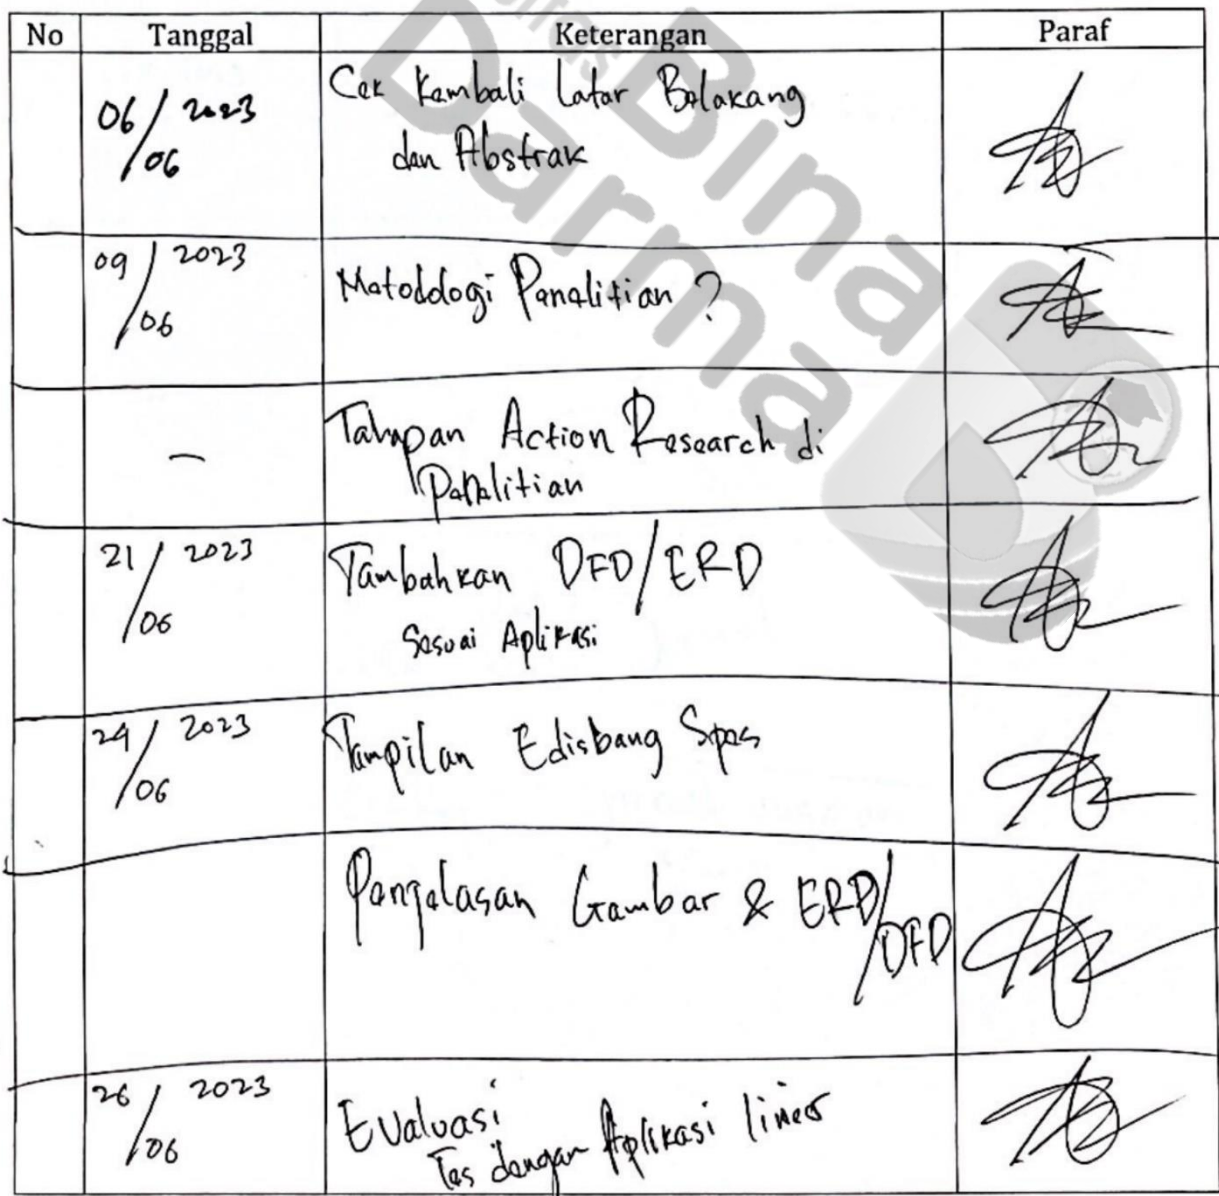 No Tanggal Keterangan Paraf
06/06 2023 Cek Kembali Latar Belakang
dan Abstrak
09/06 2023 Metodologi Penelitian ?
- Tahapan Action Research di
Penelitian
21/06 2023 Tambahkan DFD/ERD
Sesuai Aplikasi
24/06 2023 Tampilan Edisbang
Penjelasan Gambar & ERD/DFD
26/06 2023 Evaluasi
Tes dengan Aplikasi
Bina
Darma